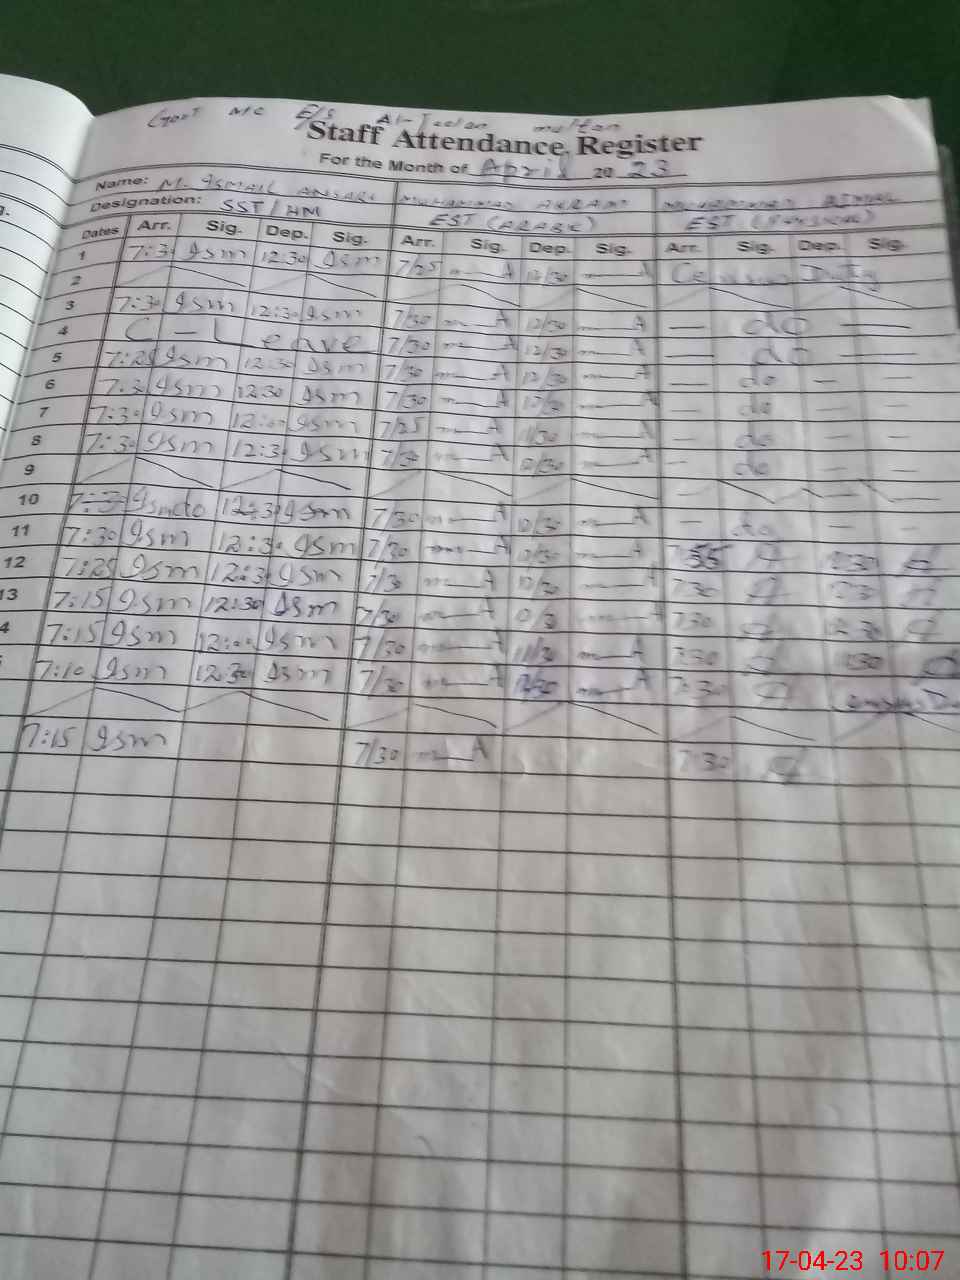 Govt M/C E/S Multan
Staff Attendance Register
For the Month of April 20 23
Name: M. Ismail Ansari Muhammad Akram Muhammad
Designation: SST/HM EST (ARABIC) EST
Dates Arr. Sig. Dep. Sig. Arr. Sig. Dep. Sig. Arr. Sig. Dep. Sig.
1 7:3 Ism 12:30 Ism 7/25 m A 12/30 m A Census Duty
2
3 7:30 Ism 12:30 Ism 7/30 m A 12/30 m A — do —
4 C - Leave 7/30 m A 12/30 m A — do —
5 7:25 Ism 12:30 Ism 7/30 m A 12/30 m A — do — —
6 7:3 Ism 12:30 Ism 7/30 m A 12/30 m A — do — —
7 7:30 Ism 12:00 Ism 7/25 m A 11/30 m A — do — —
8 7:30 Ism 12:3 Ism 7/30 m A 12/30 m A — do — —
9
10 Ism 12:30 Ism 7/30 m A 12/30 m A — do — —
11 7:30 Ism 12:30 Ism 7/30 m A 12/30 m A 55 1230
12 7:25 Ism 12:30 Ism 7/30 m A 12/30 m A 730 1230
13 7:15 Ism 12:30 Ism 7/30 m A m A 730 12 30
4 7:15 Ism 12:00 Ism 7/30 m A 11/30 m A 730
7:10 Ism 12:30 Ism 7/30 m A 12/30 m A 7:30
7:15 Ism 7/30 m A 7:30
17-04-23 10:07